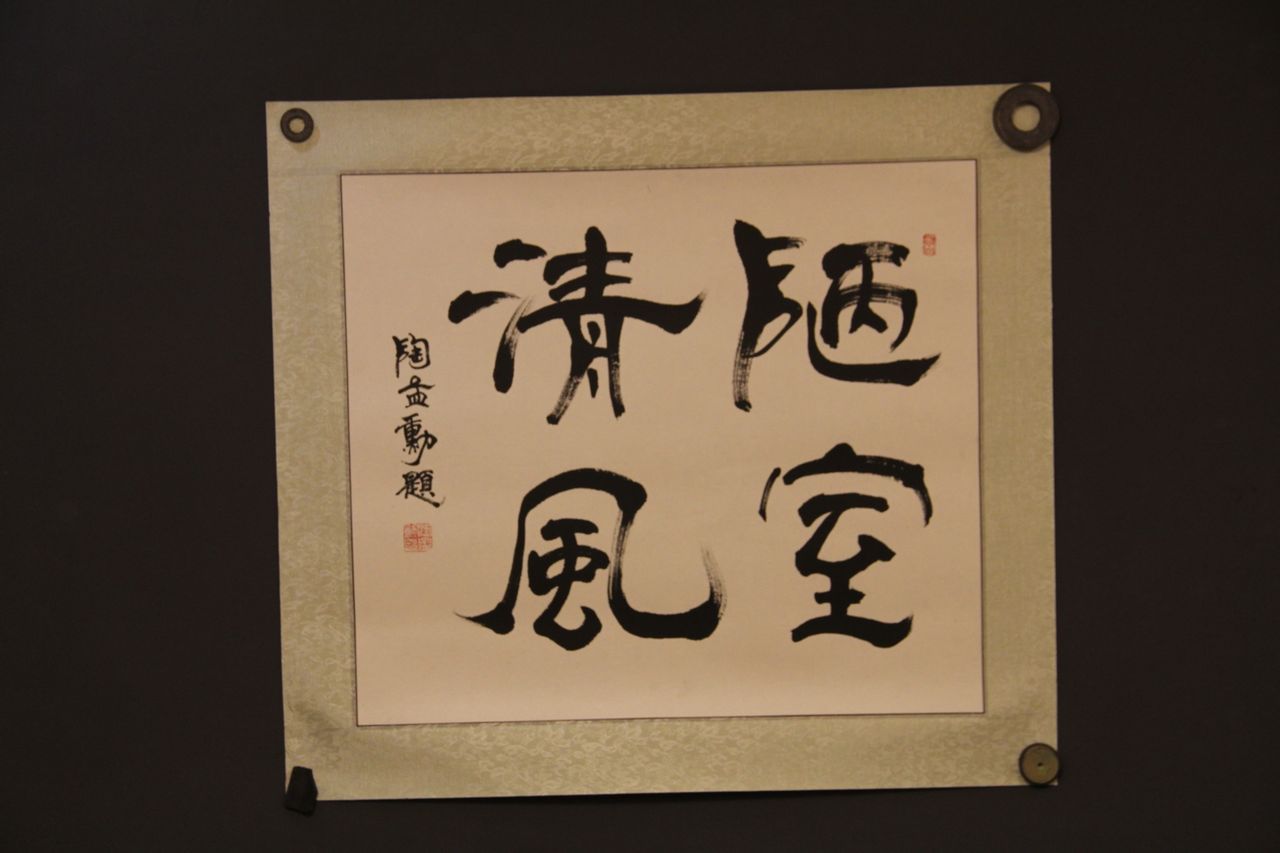 陋室
清風
陶益勳題